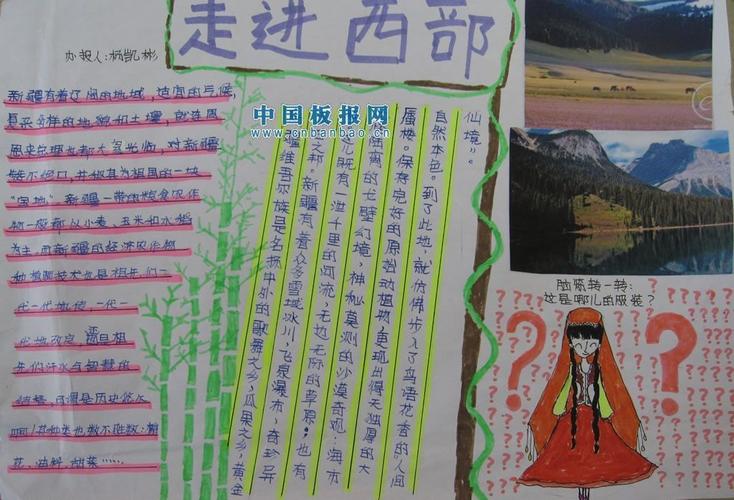 走进西部
办报人：杨凯彬
新疆有着辽阔的地域，适宜的气候，
复杂多样的地貌和土壤，就连周
恩来总理也都大驾光临，对新疆
赞不绝口，并称其为祖国的一块
"宝地"。新疆一带的粮食农作
物一般都以小麦、玉米和水稻
为主，而新疆的经济农作物
种植技术也是祖先们一
代一代地传，一代一
祖先们汗水与智慧的
结晶，可谓是历史悠久
花、油料、甜菜……
中国板报网
www.cnbanbao.cn
疆维吾尔族是名扬中外的歌舞之乡，瓜果之乡，黄金
之邦。新疆有着众多雪域冰川，飞泉瀑布，奇珍异
这儿既有一泄千里的河流，无边无际的草原；也有
的戈壁幻境，神秘莫测的沙漠奇观，海市
蜃楼。保存完好的原始动植物，更现出得天独厚的大
自然本色。到了此地，就仿佛步入了鸟语花香的"人间
仙境"。
脑筋转一转：
这是哪儿的服装？